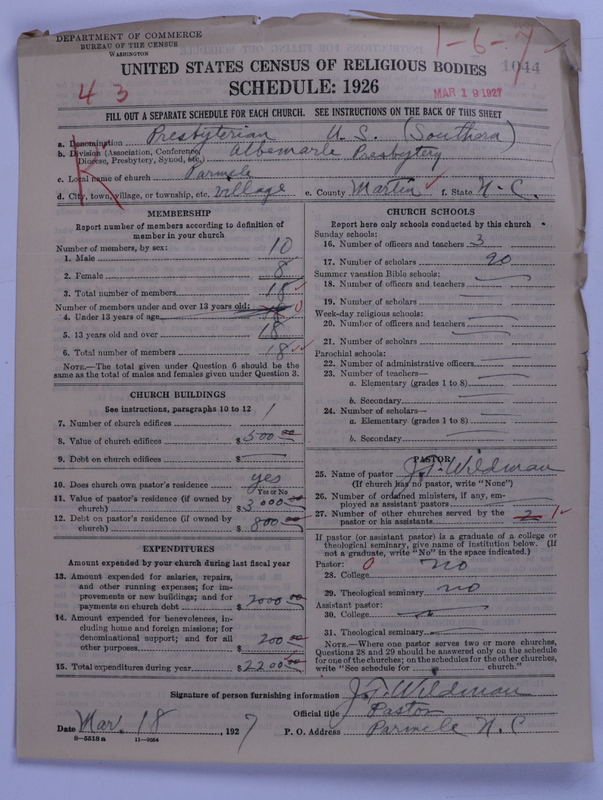 DEPARTMENT OF COMMERCE
BUREAU OF THE CENSUS
WASHINGTON
1-6-7
1044
43
UNITED STATES CENSUS OF RELIGIOUS BODIES
SCHEDULE: 1926
MAR 19 1927
FILL OUT A SEPARATE SCHEDULE FOR EACH CHURCH. SEE INSTRUCTIONS ON THE BACK OF THIS SHEET
K
a. Denomination Presbyterian U. S. (Southern)
b. Division (Association, Conference, Diocese, Presbytery, Synod, etc.) Albemarle Presbytery
c. Local name of church Parmele
d. City, town, village, or township, etc. Village e. County Martin f. State N. C.
MEMBERSHIP
Report number of members according to definition of
member in your church
Number of members, by sex:
1. Male 10
2. Female 8
3. Total number of members 18
Number of members under and over 13 years old:
4. Under 13 years of age 0
5. 13 years old and over 18
6. Total number of members 18
NOTE.—The total given under Question 6 should be the
same as the total of males and females given under Question 3.
CHURCH BUILDINGS
See instructions, paragraphs 10 to 12
7. Number of church edifices 1
8. Value of church edifices $ 500.00
9. Debt on church edifices $
10. Does church own pastor's residence yes
Yes or No
11. Value of pastor's residence (if owned by
church) $ 3000.00
12. Debt on pastor's residence (if owned by
church) $ 800.00
EXPENDITURES
Amount expended by your church during last fiscal year
13. Amount expended for salaries, repairs,
and other running expenses; for im-
provements or new buildings; and for
payments on church debt $ 2000.00
14. Amount expended for benevolences, in-
cluding home and foreign missions; for
denominational support; and for all
other purposes $ 200.00
15. Total expenditures during year $ 2200.00
CHURCH SCHOOLS
Report here only schools conducted by this church
Sunday schools:
16. Number of officers and teachers 3
17. Number of scholars 90
Summer vacation Bible schools:
18. Number of officers and teachers
19. Number of scholars
Week-day religious schools:
20. Number of officers and teachers
21. Number of scholars
Parochial schools:
22. Number of administrative officers
23. Number of teachers—
a. Elementary (grades 1 to 8)
b. Secondary
24. Number of scholars—
a. Elementary (grades 1 to 8)
b. Secondary
PASTOR
25. Name of pastor J. T. Wildman
(If church has no pastor, write "None")
26. Number of ordained ministers, if any, em-
ployed as assistant pastors
27. Number of other churches served by the
pastor or his assistants 2 1
If pastor (or assistant pastor) is a graduate of a college or
theological seminary, give name of institution below. (If
not a graduate, write "No" in the space indicated.)
Pastor: 0
28. College no
29. Theological seminary no
Assistant pastor:
30. College
31. Theological seminary
NOTE.—Where one pastor serves two or more churches,
Questions 28 and 29 should be answered only on the schedule
for one of the churches; on the schedules for the other churches,
write "See schedule for church."
Signature of person furnishing information J. T. Wildman
Official title Pastor
Date Mar. 18, 1927 P. O. Address Parmele N. C
8-5518 a 11-9054